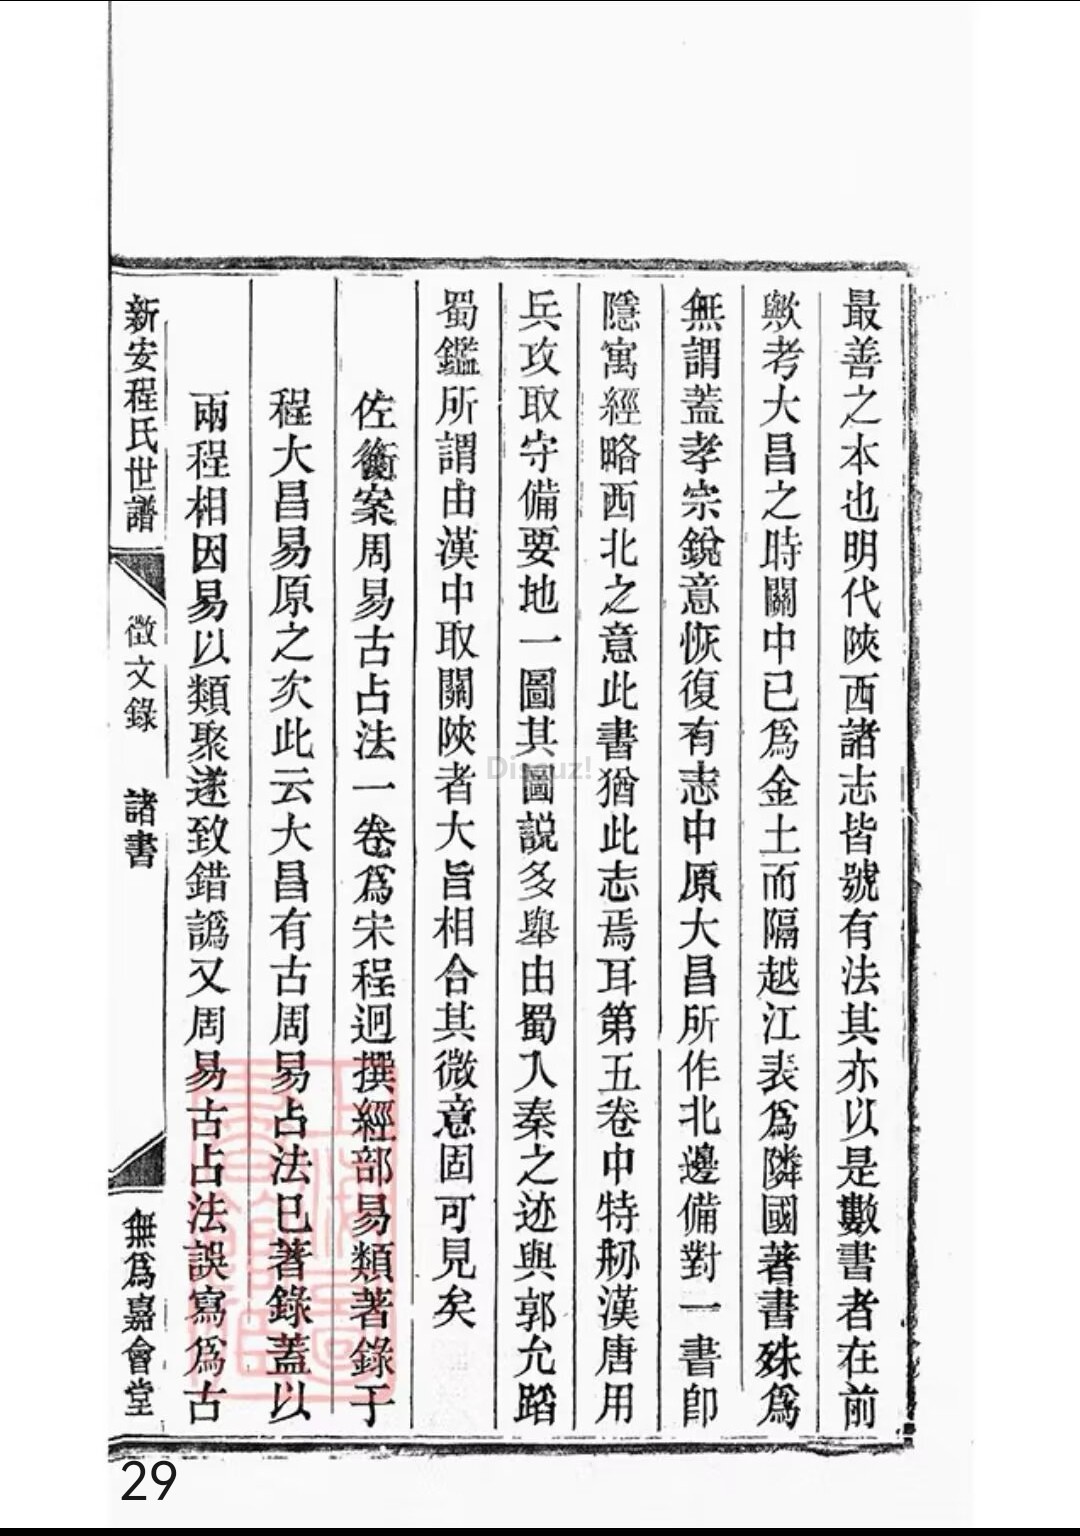 最善之本也明代陜西諸志皆號有法其亦以是數書者在前
歟考大昌之時關中已爲金土而隔越江表爲隣國著書殊爲
無謂蓋孝宗銳意恢復有志中原大昌所作北邊備對一書卽
隱寓經略西北之意此書猶此志焉耳第五卷中特刱漢唐用
兵攻取守備要地一圖其圖說多舉由蜀入秦之迹與郭允蹈
蜀鑑所謂由漢中取關陜者大旨相合其微意固可見矣
佐衡案周易古占法一卷爲宋程迥撰經部易類著錄于
程大昌易原之次此云大昌有古周易占法已著錄蓋以
兩程相因易以類聚遂致錯譌又周易古占法誤寫爲古
新安程氏世譜 徵文錄 諸書 無爲嘉會堂
Discuz!
29